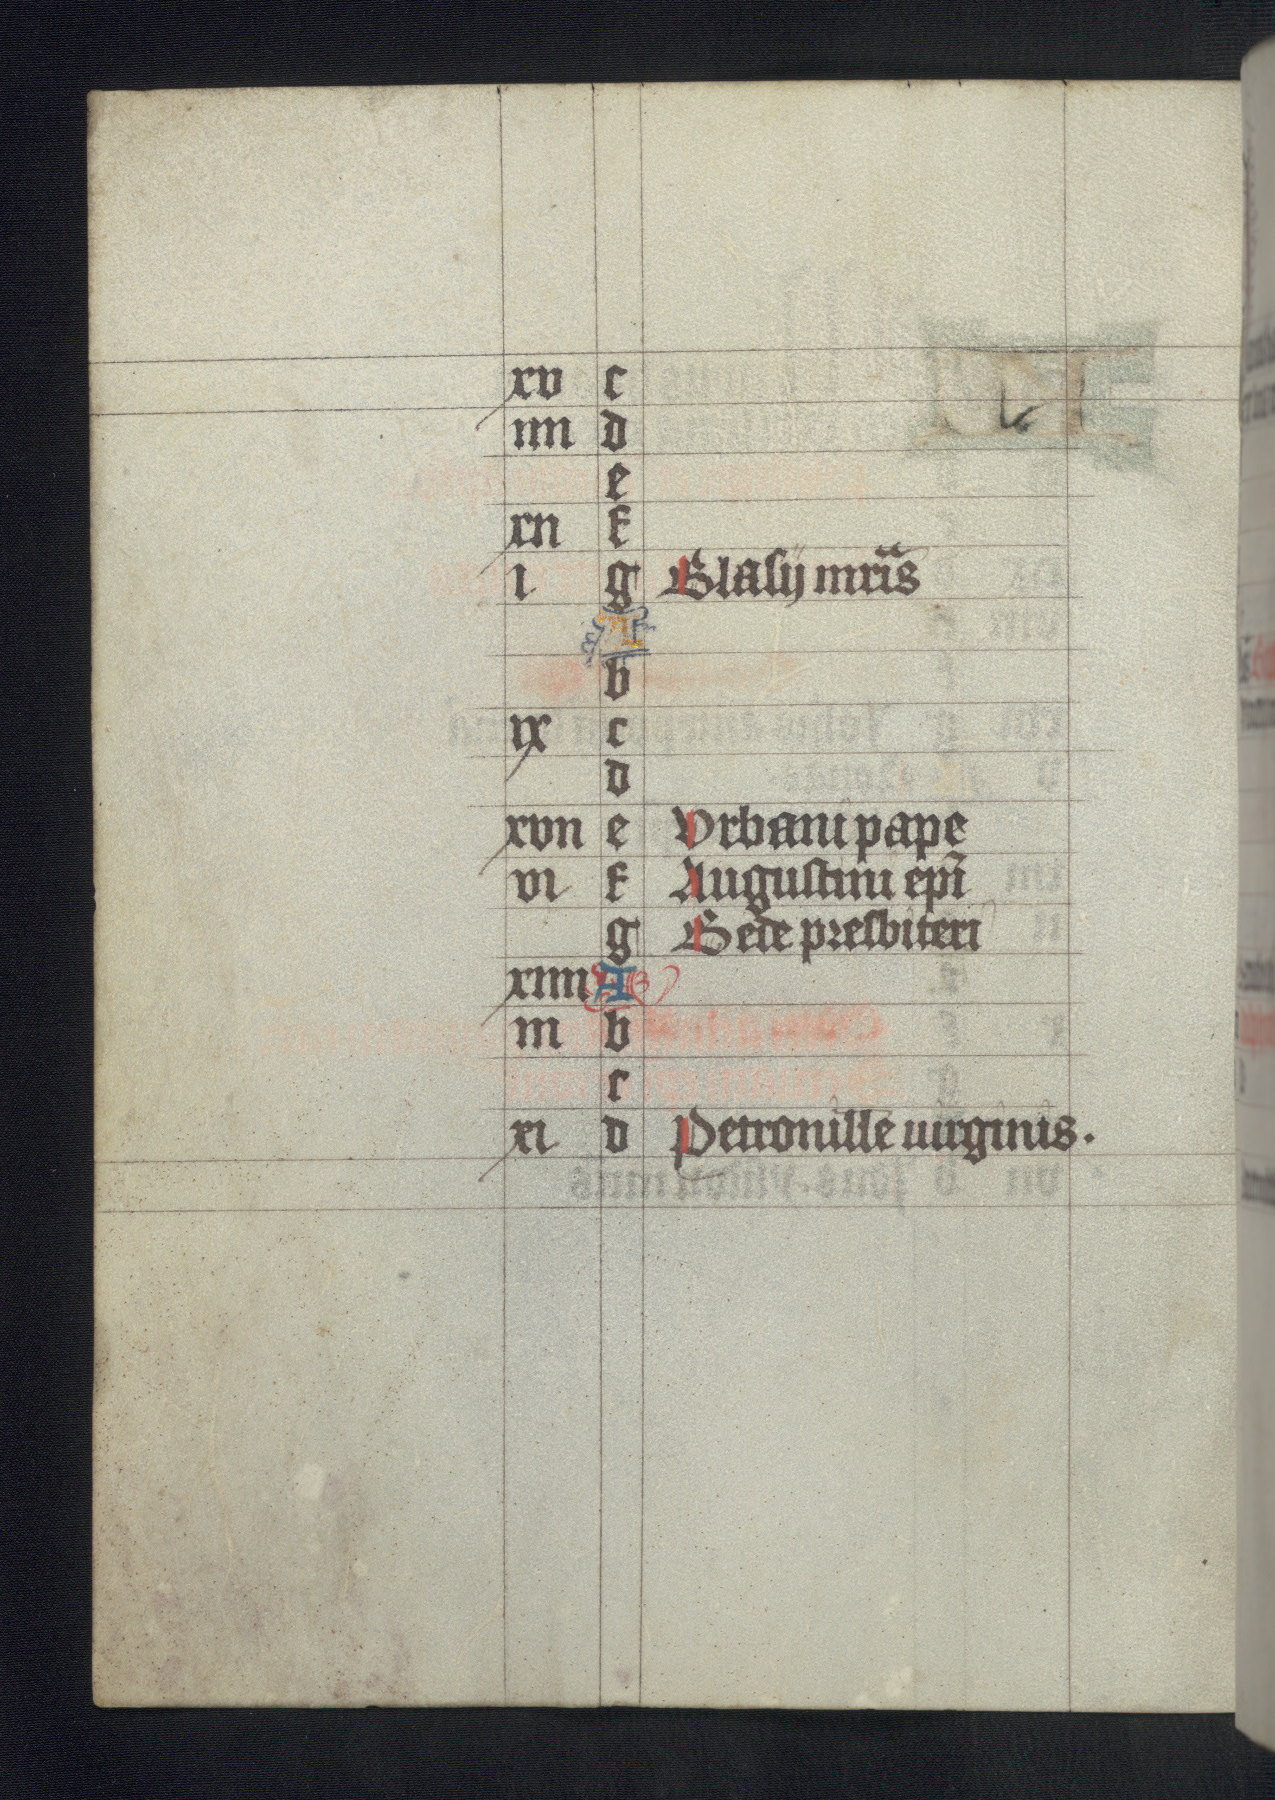 xv c
iiii d
e
xii f
i g Blasij mr̄is
A
b
ix c
d
xvii e Vrbani pape
vi f Augustini ep̄i
g Bede presbiteri
xiiii A
iii b
c
xi d Petronille uirginis.